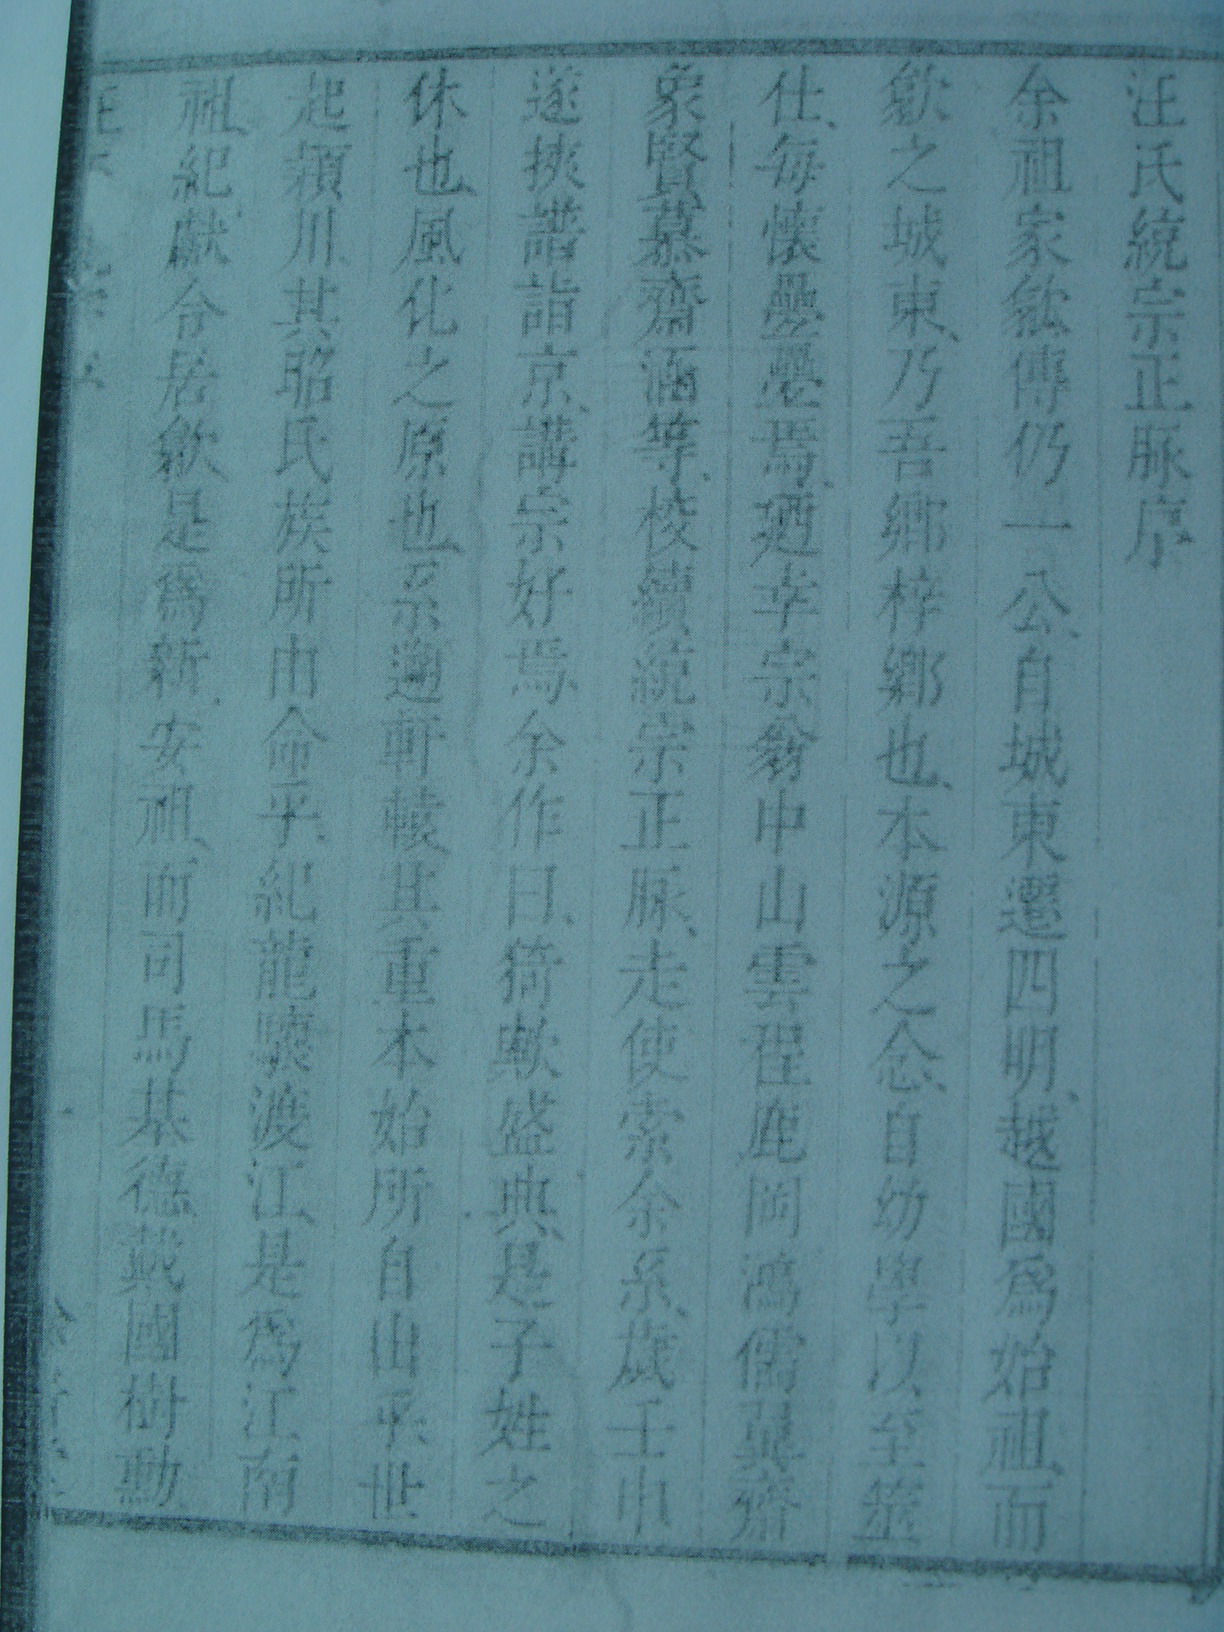 汪氏統宗正脉序
余祖家歙傳仍一公、自城東遷四明、越國爲始祖、而
歙之城東、乃吾鄉梓鄉也、本源之念、自幼學以至筮
仕、每懷壘壘焉、廼幸宗翁中山雲程鹿岡鴻儒巽齋
象賢慕齋涵等、校續統宗正脉、走使索余系、歲壬申
遂挾譜詣京、講宗好焉、余作曰、猗歟盛典、是子姓之
休也、風化之原也、系遡軒轅其重本始所自出乎、世
起潁川、其昭氏族所由命乎、紀龍驤渡江、是爲江南
祖、紀獻令居歙是爲新安祖、而司馬基德戴國樹勳